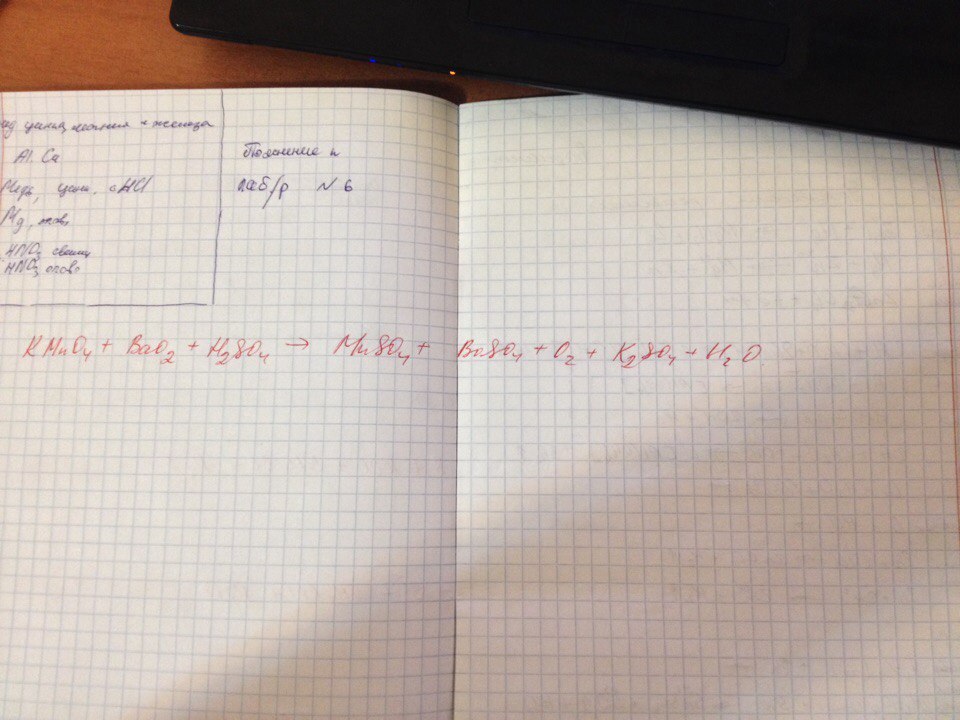 цинка, магния и железа
Al. Ca
Медь, цинк, с HCl
Mg, олово
HNO3 свинец
HNO3 олово
Пояснение к
лаб/р № 6
KMnO4 + BaO2 + H2SO4 → MnSO4 + BaSO4 + O2 + K2SO4 + H2O